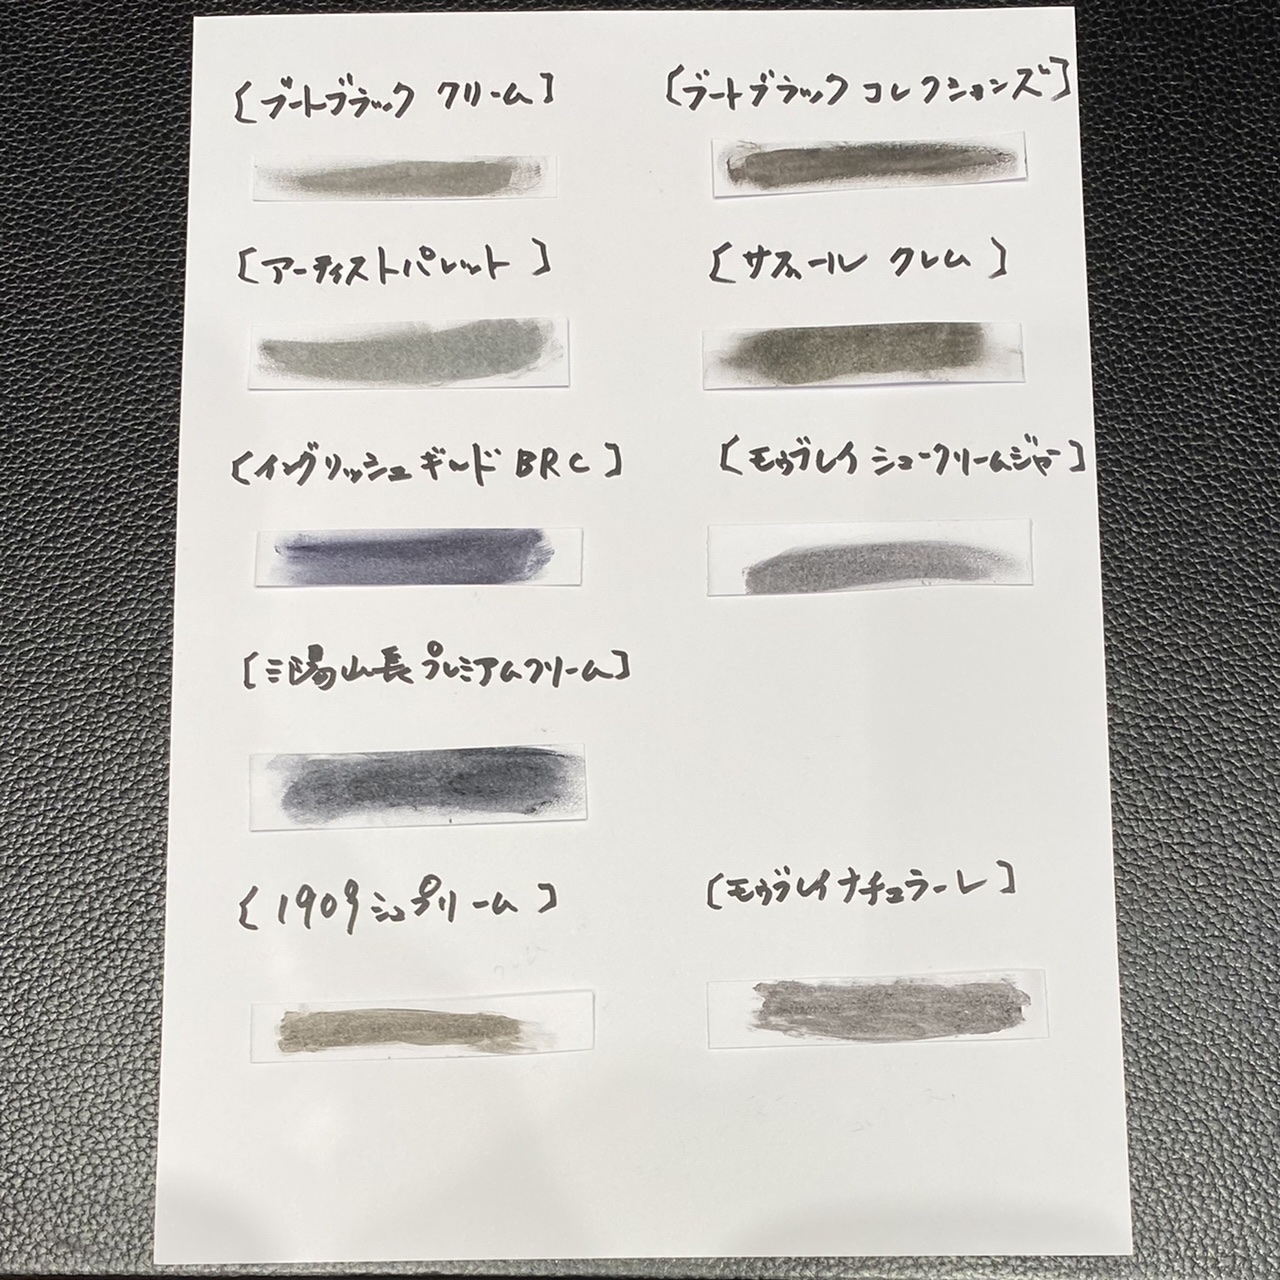 [ブートブラック クリーム]
[ブートブラック コレクションズ]
[アーティストパレット]
[サフィール クレム]
[イングリッシュギルド BRC]
[モゥブレイ シュークリームジャー]
[三陽山長プレミアムクリーム]
[1909シュプリーム]
[モゥブレイナチュラーレ]